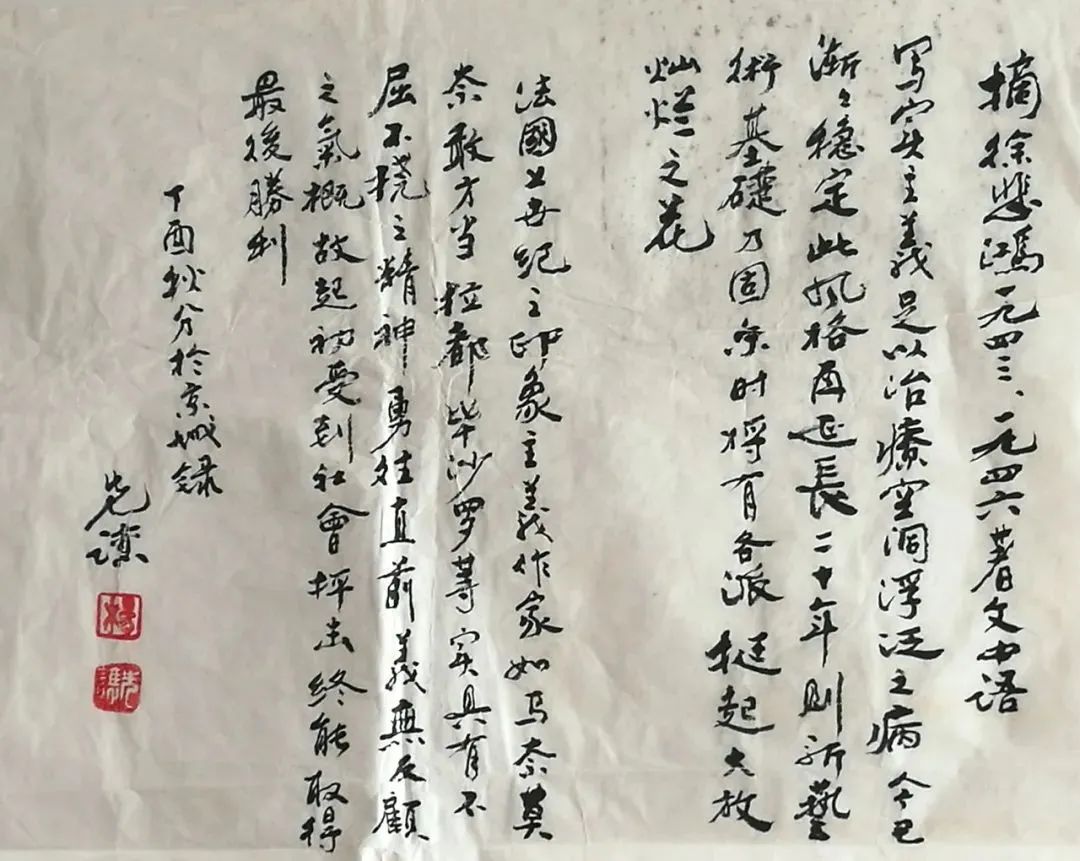 摘徐悲鸿一九四三、一九四六著文中语
写实主义足以治療空洞浮泛之病今已
漸々穩定此风格再延長二十年則新藝
術基礎乃固尔时将有各派挺起大放
灿烂之花
法國十九世纪之印象主義作家如马奈莫
奈敢方当拉都毕沙罗等实具有不
屈不挠之精神勇往直前義無反顧
之氣概故起初受到社會抨击终能取得
最後勝利
丁酉秋分於京城録
先